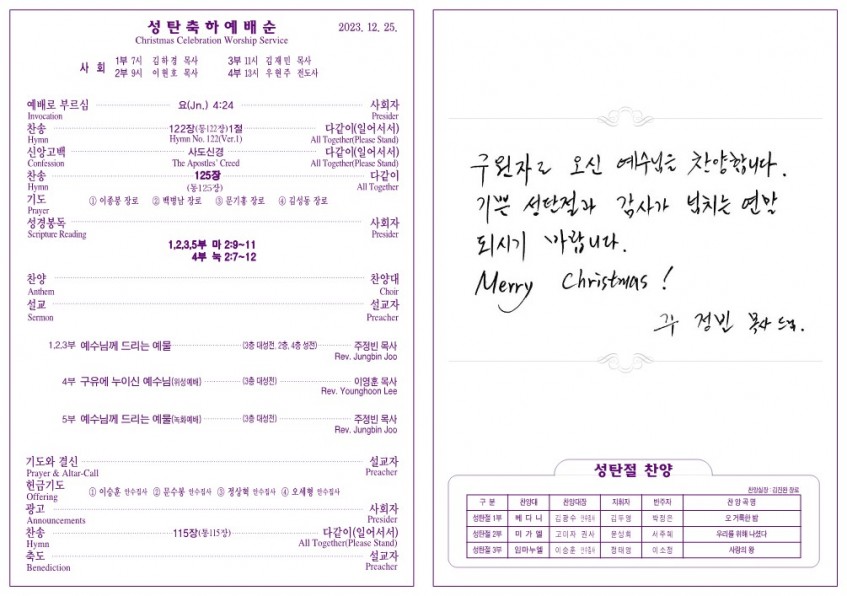 성탄축하예배순 2023. 12. 25.
Christmas Celebration Worship Service
사 회
1부 7시 김하경 목사 3부 11시 김재민 목사
2부 9시 이현호 목사 4부 13시 우현주 전도사
예배로 부르심 요(Jn.) 4:24 사회자
Invocation Presider
찬송 122장(통122장)1절 다같이(일어서서)
Hymn Hymn No. 122(Ver.1) All Together(Please Stand)
신앙고백 사도신경 다같이(일어서서)
Confession The Apostles' Creed All Together(Please Stand)
찬송 125장 다같이
Hymn (통125장) All Together
기도 ① 이종봉 장로 ② 백명남 장로 ③ 문기홍 장로 ④ 김성동 장로
Prayer
성경봉독 사회자
Scripture Reading Presider
1,2,3,5부 마 2:9~11
4부 눅 2:7~12
찬양 찬양대
Anthem Choir
설교 설교자
Sermon Preacher
1,2,3부 예수님께 드리는 예물 (3층 대성전, 2층, 4층 성전) 주정빈 목사
Rev. Jungbin Joo
4부 구유에 누이신 예수님(위성예배) (3층 대성전) 이영훈 목사
Rev. Younghoon Lee
5부 예수님께 드리는 예물(녹화예배) (3층 대성전) 주정빈 목사
Rev. Jungbin Joo
기도와 결신 설교자
Prayer & Altar-Call Preacher
헌금기도 ① 이승훈 안수집사 ② 문수봉 안수집사 ③ 정상혁 안수집사 ④ 오세형 안수집사
Offering
광고 사회자
Announcements Presider
찬송 115장(통115장) 다같이(일어서서)
Hymn All Together(Please Stand)
축도 설교자
Benediction Preacher
구원자로 오신 예수님을 찬양합니다.
기쁜 성탄절과 감사가 넘치는 연말
되시기 바랍니다.
Merry Christmas!
주정빈 목사 드림.
성탄절 찬양
찬양실장 : 김진환 장로
구 분 찬양대 찬양대장 지휘자 반주자 찬 양 곡 명
성탄절 1부 베 다 니 김광수 안수집사 김두영 박정은 오 거룩한 밤
성탄절 2부 미 가 엘 고미자 권사 윤상회 서주혜 우리를 위해 나셨다
성탄절 3부 임마누엘 이승훈 안수집사 정태영 이소정 사랑의 왕